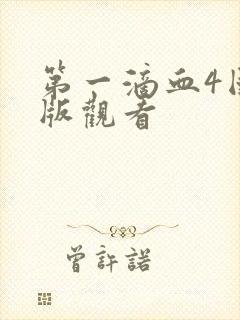 第一滴血4国
版觀看
曾許諾